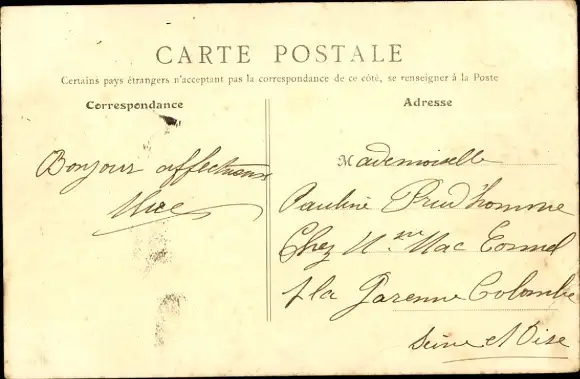 CARTE POSTALE
Certains pays étrangers n'acceptant pas la correspondance de ce côté, se renseigner à la Poste
Correspondance
Bonjour affectueux
Adresse
Mademoiselle
Pauline Prud'homme
Chez Mme Mac
à la Garenne Colombe
Seine et Oise